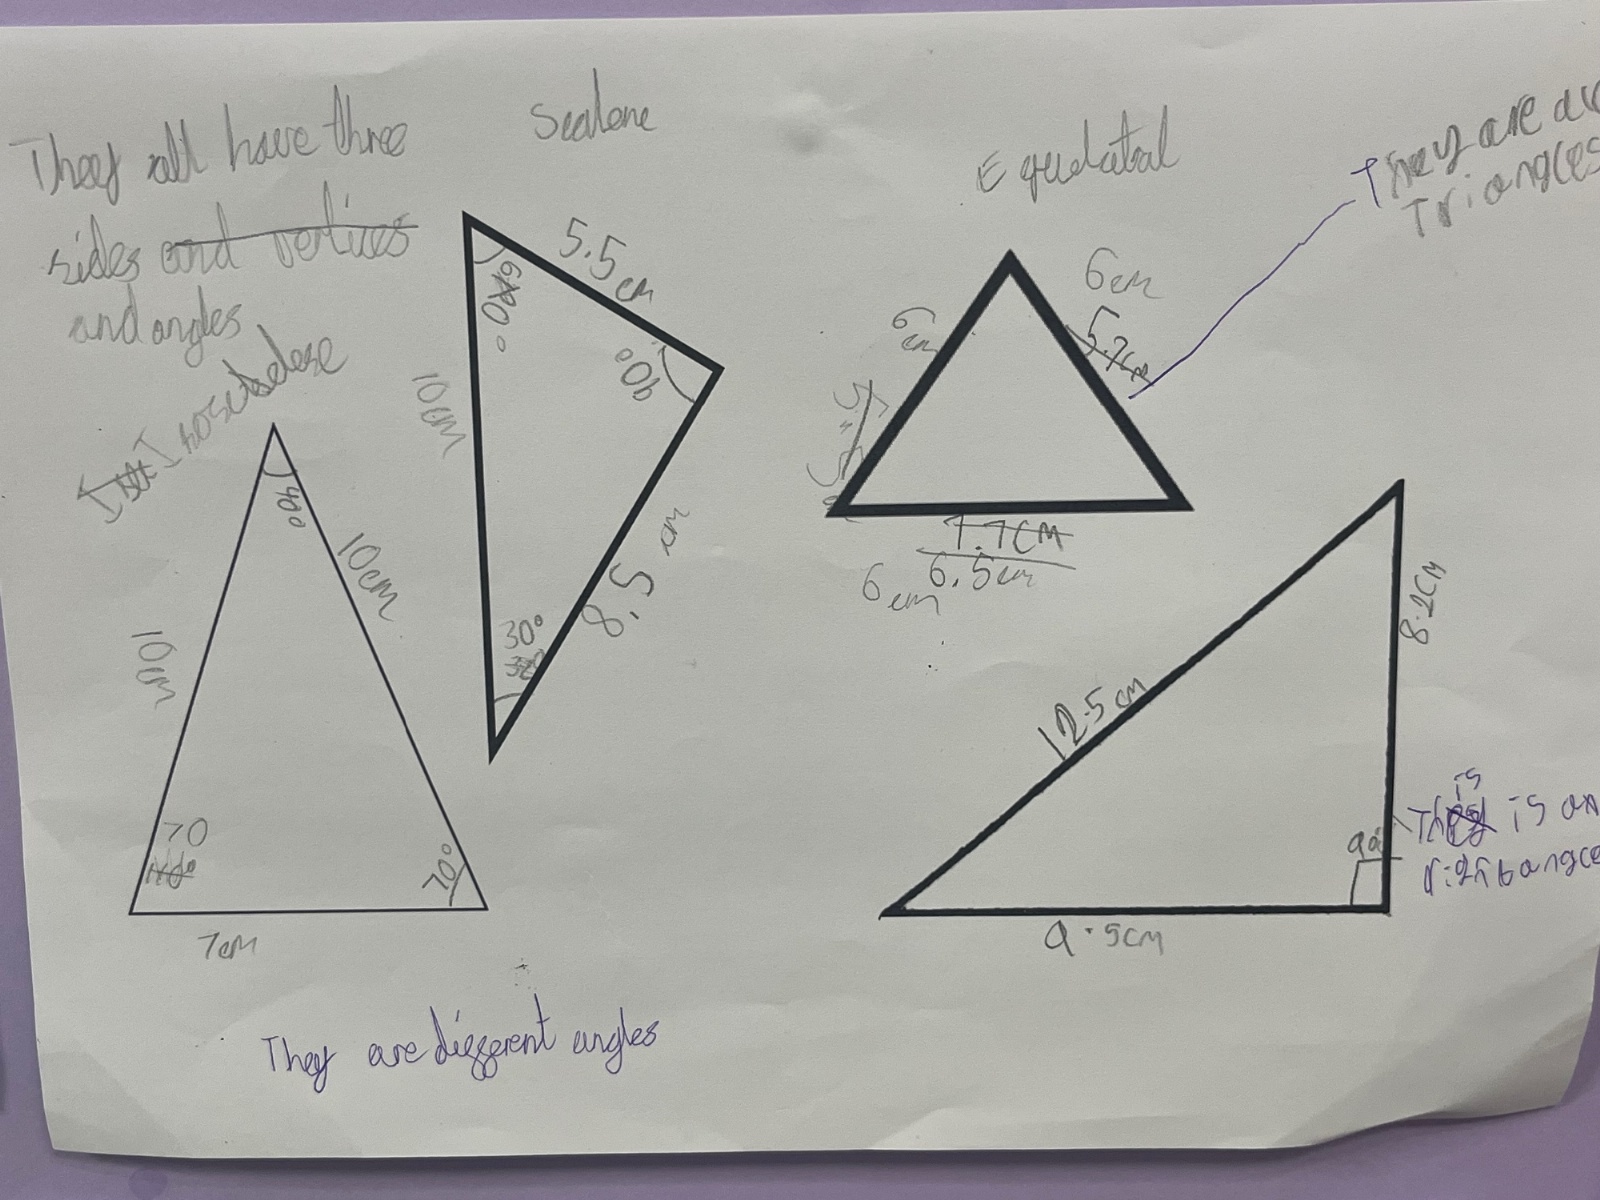 They all have three
sides and vertices
and angles
Scalene
Equilatral
They are
Triangles
5.5cm
90°
10cm
8.5 cm
30°
6cm
6cm
5.7cm
7.7CM
6.5cm
6cm
40°
10cm
10cm
70
70°
7cm
12.5cm
8.2CM
9.5cm
90°
is
is an
They are different angles